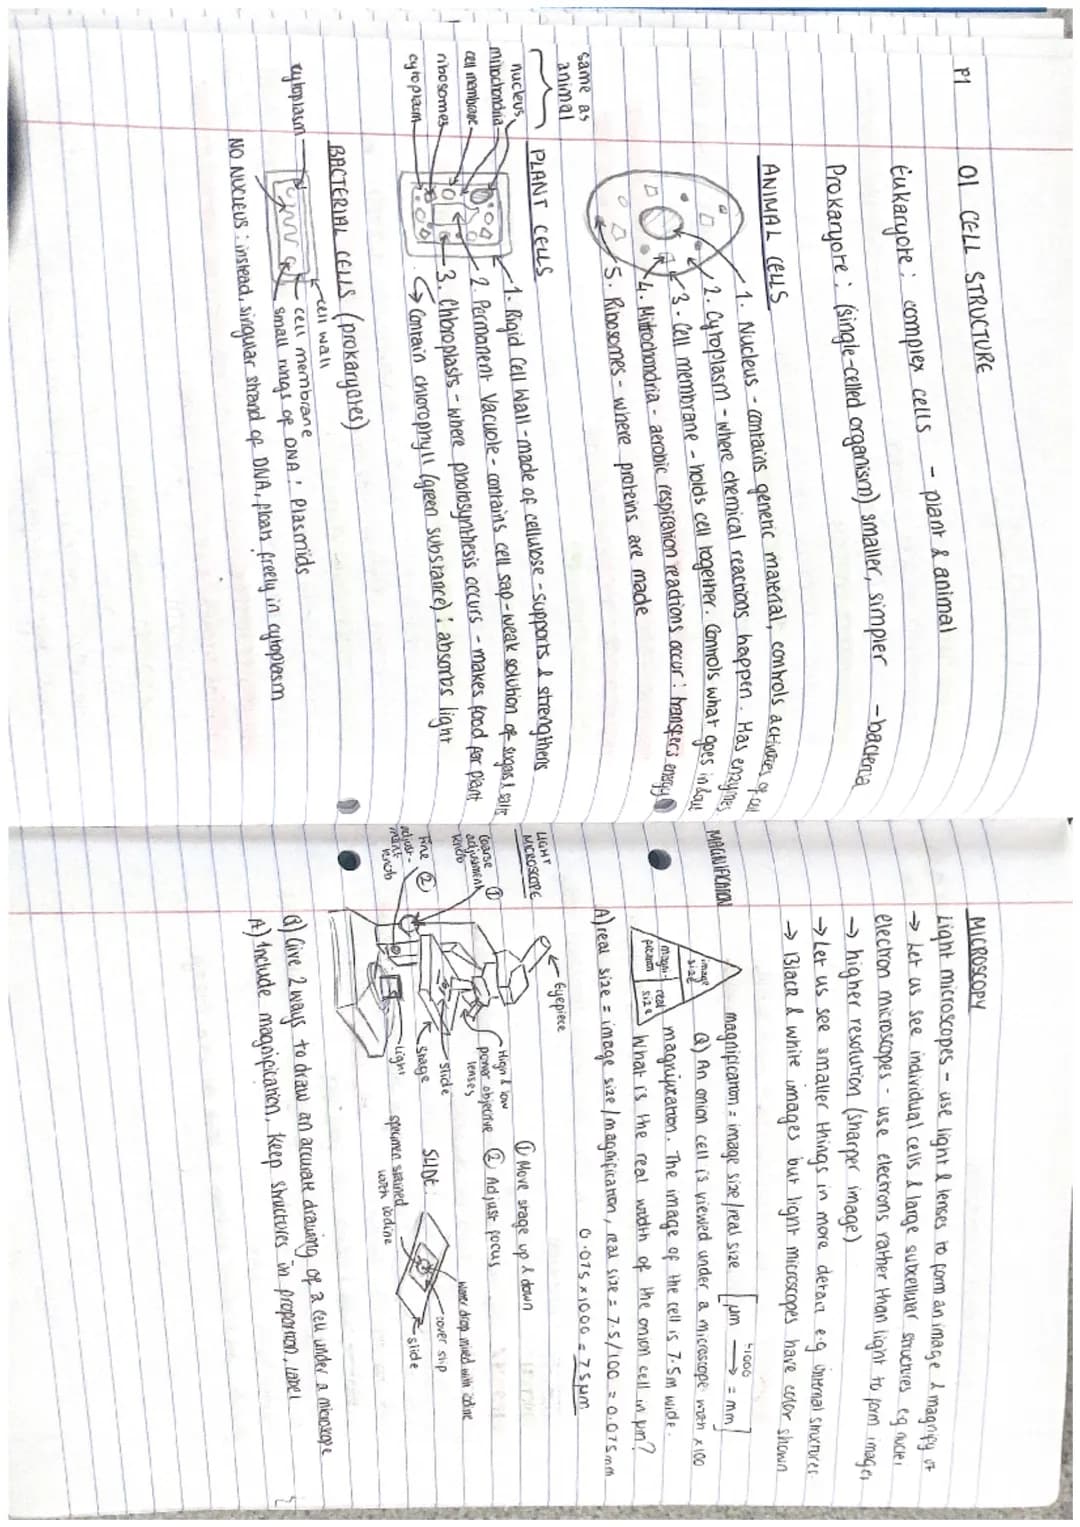 P1
01 CELL STRUCTURE
Eukaryote: complex cells - plant & animal
Prokaryote: (single-celled organism) smaller, simpler - bacteria
ANIMAL CELLS
1. Nucleus - contains genetic material, controls activities of cell
2. Cytoplasm - where chemical reactions happen. Has enzymes
3. Cell membrane - holds cell together. Controls what goes in & out
4. Mitochondria - aerobic respiration reactions occur: transfers energy
5. Ribosomes - where proteins are made
same as
animal
PLANT CELLS
nucleus
mitochondria
cell membrane
ribosomes
cytoplasm
1. Rigid Cell Wall - made of cellulose - supports & strengthens
2. Permanent Vacuole - contains cell sap - weak solution of sugar & salts
3. Chloroplasts - where photosynthesis occurs - makes food for plant
↳ Contain chlorophyll (green substance): absorbs light
BACTERIAL CELLS (prokaryotes)
cytoplasm
cell wall
cell membrane
small rings of DNA: Plasmids
NO NUCLEUS: instead, singular strand of DNA, floats freely in cytoplasm
MICROSCOPY
Light microscopes - use light & lenses to form an image & magnify it
→ Let us see individual cells & large subcellular structures eg nuclei
electron microscopes - use electrons rather than light to form images
→ higher resolution (sharper image)
→ Let us see smaller things in more detail e.g internal structures
→ Black & white images but light microscopes have color shown
MAGNIFICATION
image
size
magni-
fication
real
size
magnification = image size/real size
÷1000
[μm → = mm]
Q) An onion cell is viewed under a microscope with x100
magnification. The image of the cell is 7.5m wide.
What is the real width of the onion cell in μm?
A) real size = image size/magnification, real size = 7.5/100 = 0.075mm
0.075 x 1000 = 75μm
LIGHT
MICROSCOPE
Eyepiece
Coarse ①
adjustment
knob
Fine ②
adjust-
ment
knob
High & low
power objective
lenses
Slide
Stage
Light
① Move stage up & down
② Adjust focus
SLIDE:
water drop mixed with iodine
cover slip
slide
specimen stained
with iodine
Q) Give 2 ways to draw an accurate drawing of a cell under a microscope
A) Include magnification, keep structures in proportion, label